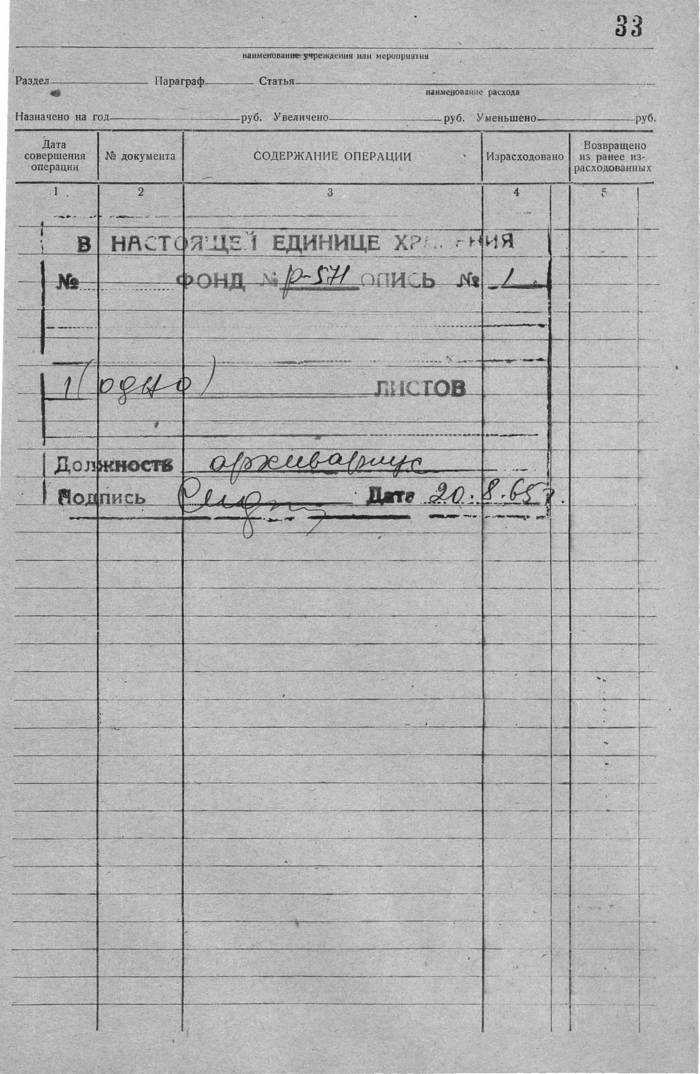 33
наименование учреждения или мероприятия
Раздел Параграф Статья
наименование расхода
Назначено на год руб. Увеличено руб. Уменьшено руб.
Дата совершения операции № документа СОДЕРЖАНИЕ ОПЕРАЦИИ Израсходовано Возвращено из ранее из-расходованных
1 2 3 4 5
В НАСТОЯЩЕЙ ЕДИНИЦЕ ХРАНЕНИЯ
№ ФОНД № р-571 ОПИСЬ № 1
1 (одно) ЛИСТОВ
Должность архивариус
Подпись Дата 20.8.65 г.